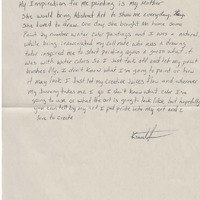 My Inspiration for me painting is my Mother
She would bring Abstract Art to show me everyday
She loved to draw one day she bought me home some
Paint by number water color paintings and I was a natural
while being incarcerated my cell mate who was a
inspired me to start painting again a guess what it
was with water colors So I just take off and let my paint
brushes fly, I don't know what I'm going to paint or how
it may look I just let my creative juices flow and wherever
my journey takes me I go I don't know what color I'm
going to use or what the art is going to look like, but hopefully
you can tell by my art I put pride into my art and I
love to create